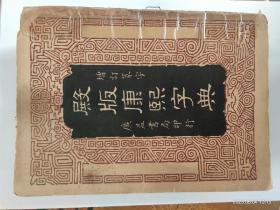 增訂篆字
殿版康熙字典
廣益書局印行